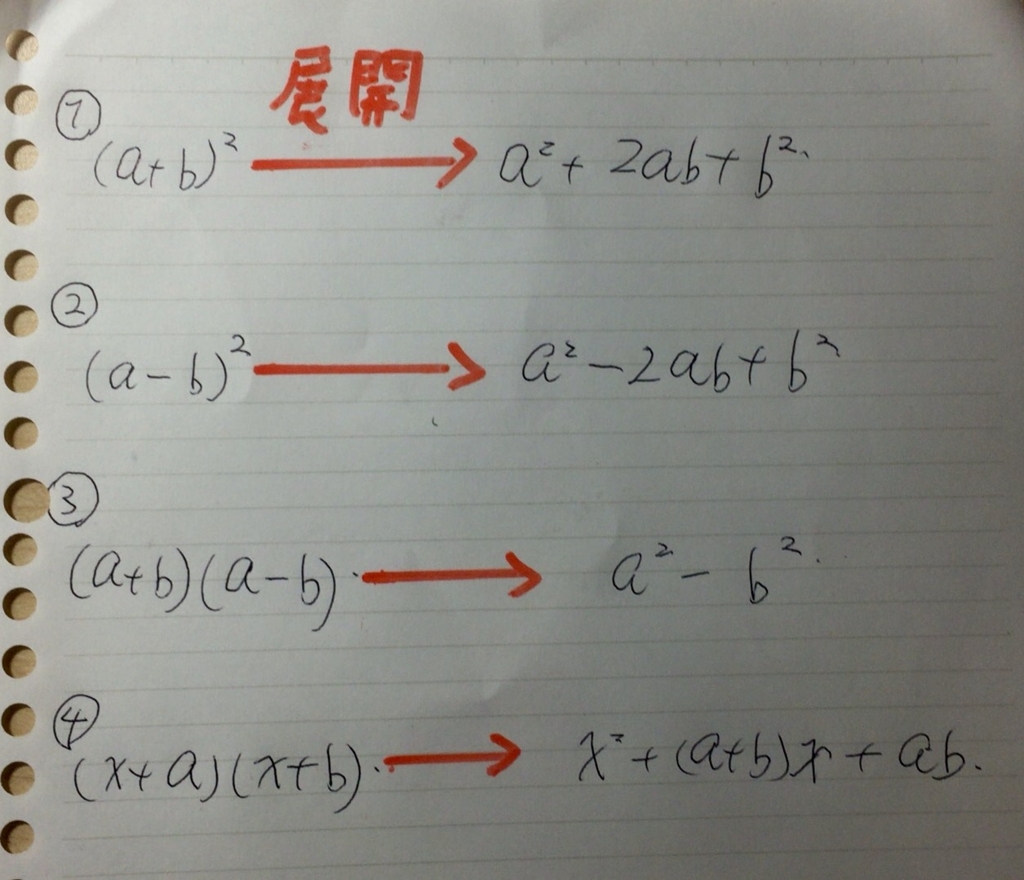 展開
①
(a+b)² → a² + 2ab + b²
②
(a-b)² → a² - 2ab + b²
③
(a+b)(a-b) → a² - b²
④
(x+a)(x+b) → x² + (a+b)x + ab.